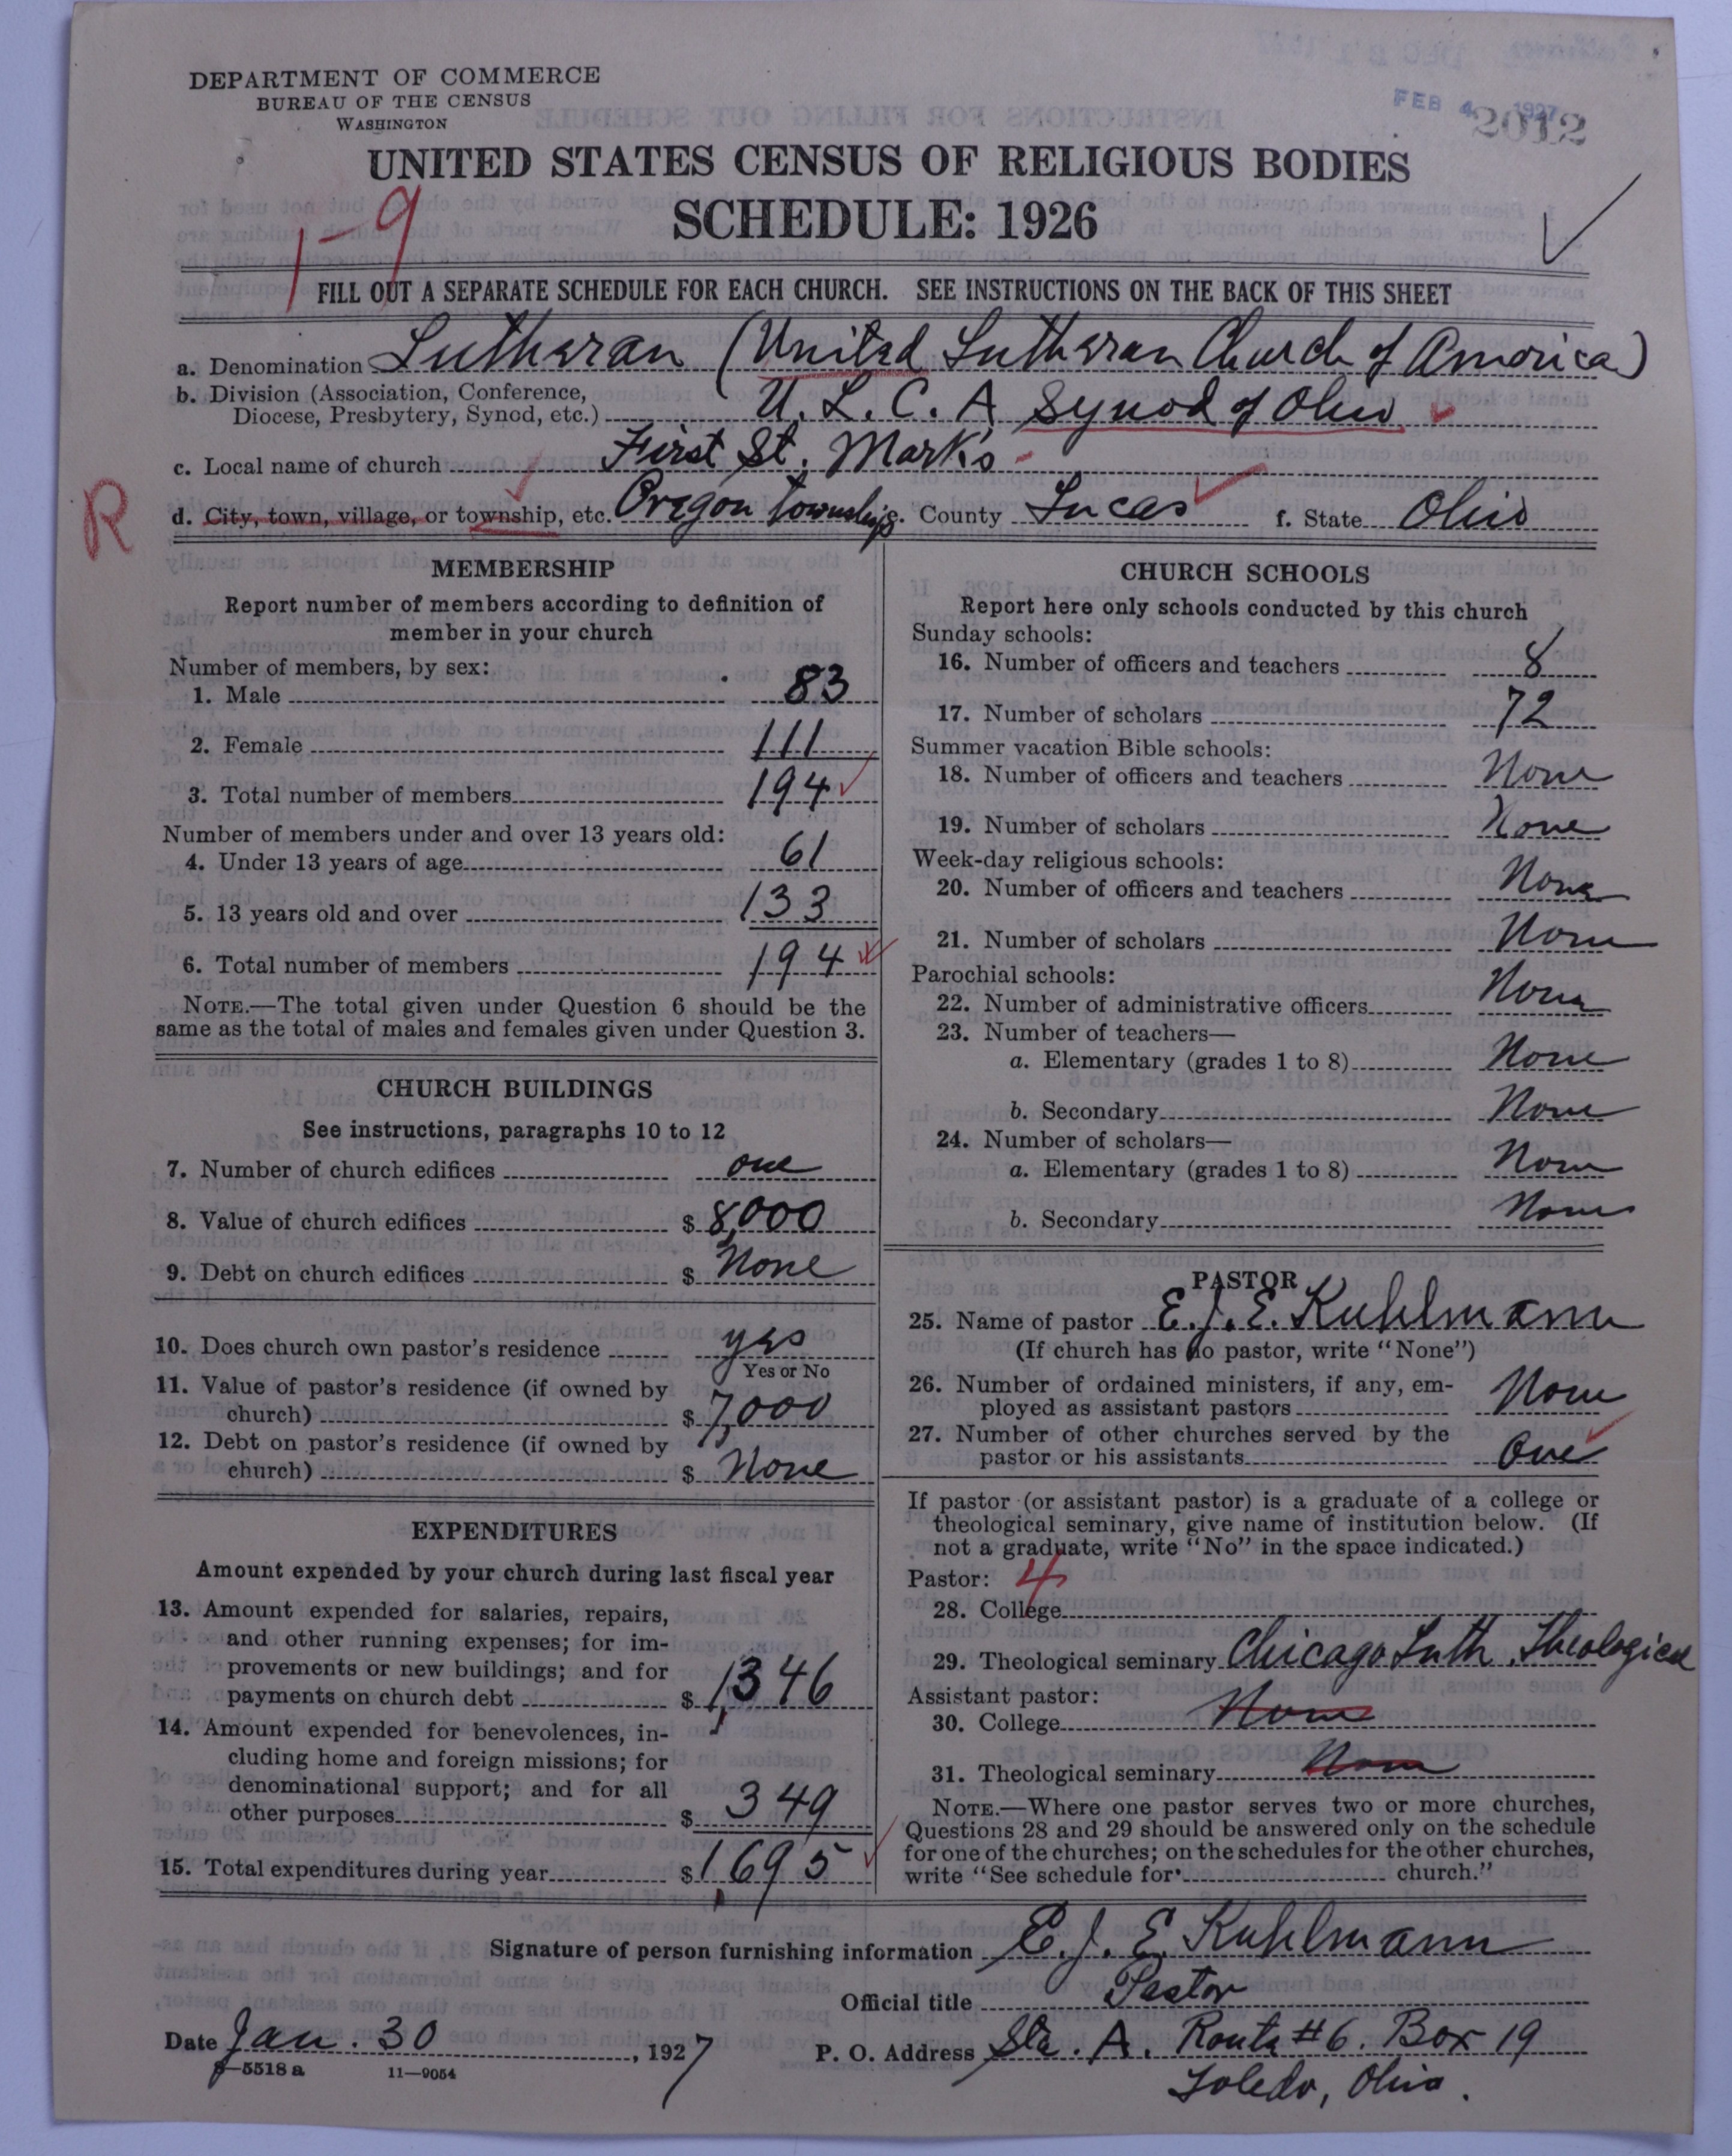 DEPARTMENT OF COMMERCE
BUREAU OF THE CENSUS
WASHINGTON
FEB 4 1927
2012
UNITED STATES CENSUS OF RELIGIOUS BODIES
SCHEDULE: 1926
1-9
FILL OUT A SEPARATE SCHEDULE FOR EACH CHURCH. SEE INSTRUCTIONS ON THE BACK OF THIS SHEET
a. Denomination Lutheran (United Lutheran Church of America)
b. Division (Association, Conference,
Diocese, Presbytery, Synod, etc.) U. L. C. A Synod of Ohio
c. Local name of church First St. Mark's
R
d. City, town, village, or township, etc. Oregon Township e. County Lucas f. State Ohio
MEMBERSHIP
Report number of members according to definition of
member in your church
Number of members, by sex:
1. Male 83
2. Female 111
3. Total number of members 194
Number of members under and over 13 years old:
4. Under 13 years of age 61
5. 13 years old and over 133
6. Total number of members 194
NOTE.—The total given under Question 6 should be the
same as the total of males and females given under Question 3.
CHURCH BUILDINGS
See instructions, paragraphs 10 to 12
7. Number of church edifices one
8. Value of church edifices $ 8,000
9. Debt on church edifices $ None
10. Does church own pastor's residence yes
Yes or No
11. Value of pastor's residence (if owned by
church) $ 7,000
12. Debt on pastor's residence (if owned by
church) $ None
EXPENDITURES
Amount expended by your church during last fiscal year
13. Amount expended for salaries, repairs,
and other running expenses; for im-
provements or new buildings; and for
payments on church debt $ 1,346
14. Amount expended for benevolences, in-
cluding home and foreign missions; for
denominational support; and for all
other purposes $ 349
15. Total expenditures during year $ 1,695
CHURCH SCHOOLS
Report here only schools conducted by this church
Sunday schools:
16. Number of officers and teachers 8
17. Number of scholars 72
Summer vacation Bible schools:
18. Number of officers and teachers None
19. Number of scholars None
Week-day religious schools:
20. Number of officers and teachers None
21. Number of scholars None
Parochial schools:
22. Number of administrative officers None
23. Number of teachers—
a. Elementary (grades 1 to 8) None
b. Secondary None
24. Number of scholars—
a. Elementary (grades 1 to 8) None
b. Secondary None
PASTOR
25. Name of pastor E. J. E. Kuhlmann
(If church has no pastor, write "None")
26. Number of ordained ministers, if any, em-
ployed as assistant pastors None
27. Number of other churches served by the
pastor or his assistants One
If pastor (or assistant pastor) is a graduate of a college or
theological seminary, give name of institution below. (If
not a graduate, write "No" in the space indicated.)
Pastor: 4
28. College
29. Theological seminary Chicago Luth. Theological
Assistant pastor:
30. College None
31. Theological seminary None
NOTE.—Where one pastor serves two or more churches,
Questions 28 and 29 should be answered only on the schedule
for one of the churches; on the schedules for the other churches,
write "See schedule for church."
Signature of person furnishing information E. J. E. Kuhlmann
Official title Pastor
Date Jan. 30, 1927
P. O. Address Sta. A. Route #6. Box 19
Toledo, Ohio.
8—5518 a 11—9054